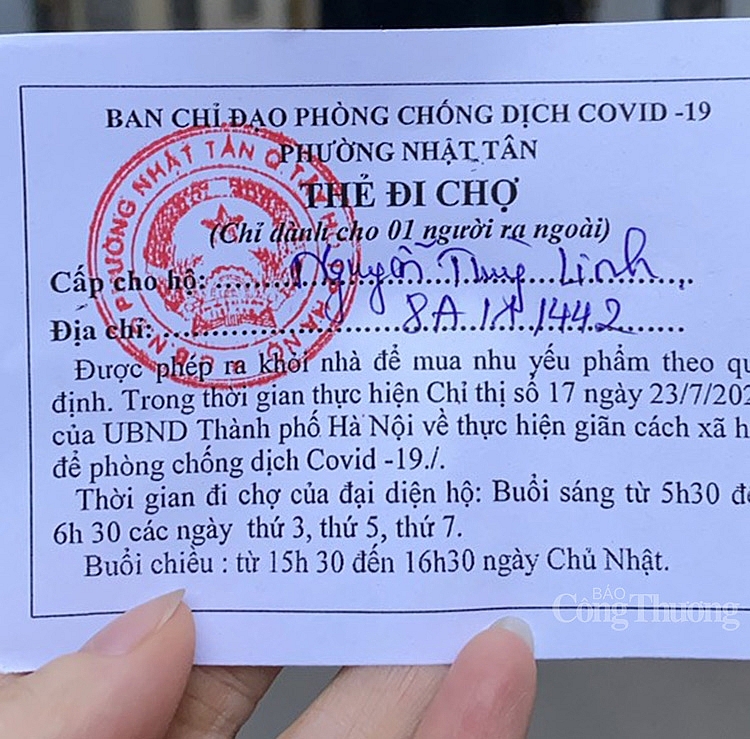 BAN CHỈ ĐẠO PHÒNG CHỐNG DỊCH COVID -19
PHƯỜNG NHẬT TÂN
THẺ ĐI CHỢ
(Chỉ dành cho 01 người ra ngoài)
Cấp cho hộ: Nguyễn Thùy Linh
Địa chỉ: 8A 1442
Được phép ra khỏi nhà để mua nhu yếu phẩm theo qu
định. Trong thời gian thực hiện Chỉ thị số 17 ngày 23/7/202
của UBND Thành phố Hà Nội về thực hiện giãn cách xã h
để phòng chống dịch Covid -19./.
Thời gian đi chợ của đại diện hộ: Buổi sáng từ 5h30 đế
6h 30 các ngày thứ 3, thứ 5, thứ 7.
Buổi chiều : từ 15h 30 đến 16h30 ngày Chủ Nhật.
PHƯỜNG NHẬT TÂN Q.T
BÁO
Công Thương